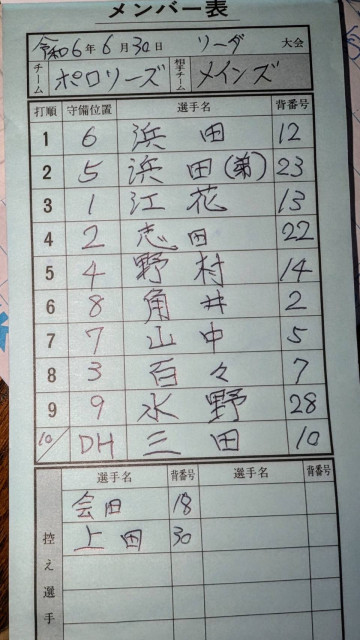 メンバー表
令和6年6月30日 リーグ 大会
チーム ポロリーズ 相手チーム メインズ
打順 守備位置 選手名 背番号
1 6 浜田 12
2 5 浜田(弟) 23
3 1 江花 13
4 2 志田 22
5 4 野村 14
6 8 角井 2
7 7 山中 5
8 3 百々 7
9 9 水野 28
10 DH 三田 10
控え選手 選手名 背番号 選手名 背番号
会田 18
上田 30